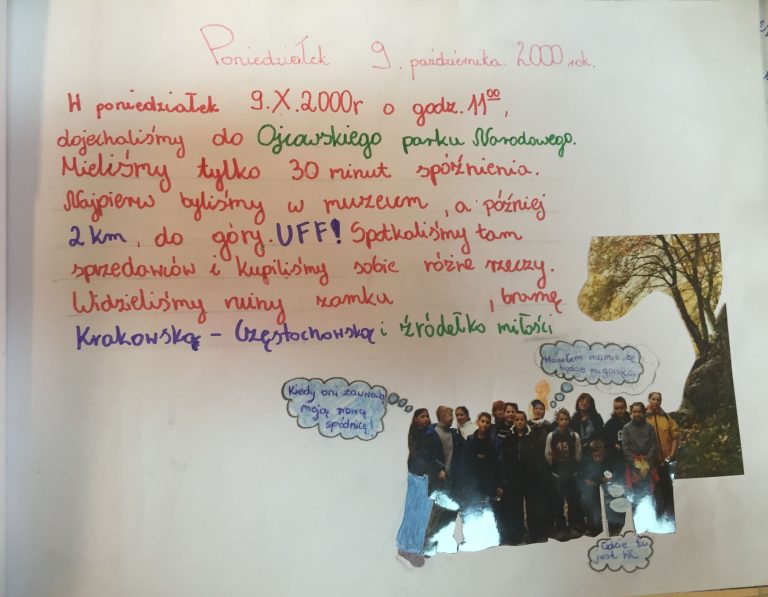 Poniedziałek 9. października 2000 rok.
W poniedziałek 9.X.2000r o godz. 11⁰⁰,
dojechaliśmy do Ojcowskiego parku Narodowego.
Mieliśmy tylko 30 minut spóźnienia.
Najpierw byliśmy w muzeum, a później
2 km, do góry. UFF! Spotkaliśmy tam
sprzedawców i kupiliśmy sobie różne rzeczy.
Widzieliśmy ruiny zamku , bramę
Krakowską - Częstochowską i źródełko miłości
Kiedy oni zauważą
moją nową
spódnicę!
Mówiłem mamie, że
będzie mi gorąco.
Gdzie tu
jest WC
15